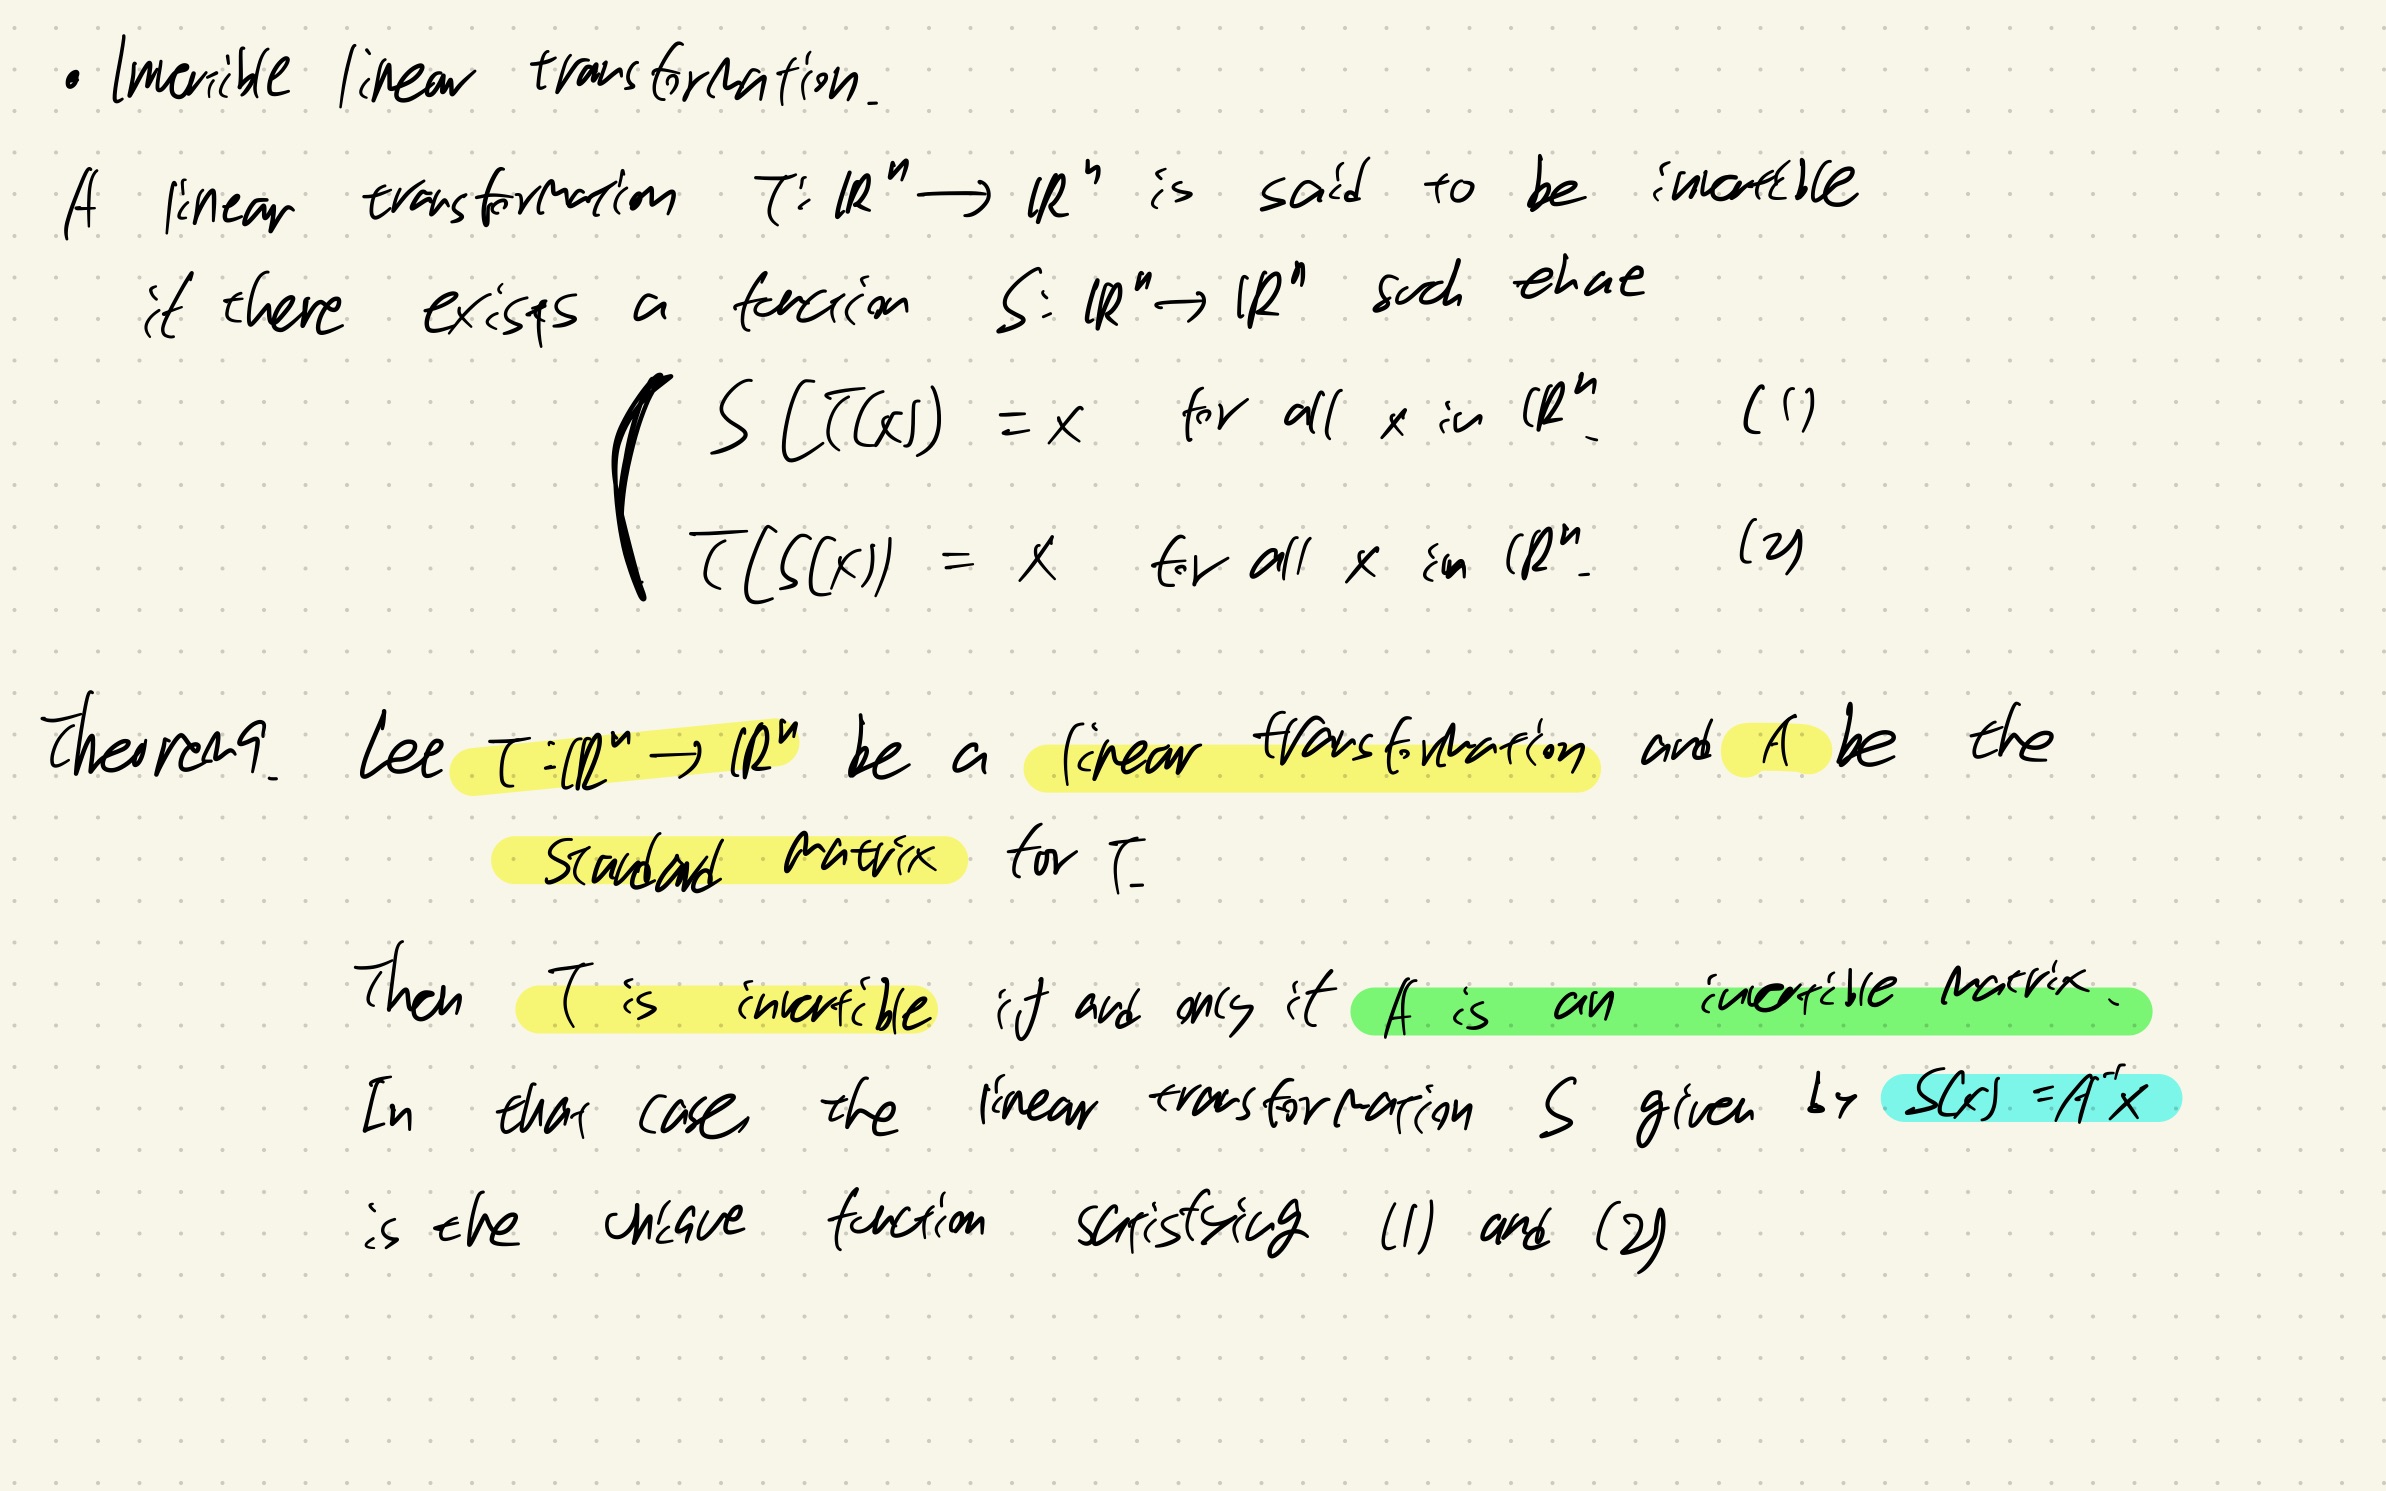 • Invertible linear transformation.
A linear transformation T: ℝⁿ → ℝⁿ is said to be invertible
if there exists a function S: ℝⁿ → ℝⁿ such that
S(T(x)) = x for all x in ℝⁿ. (1)
T(S(x)) = x for all x in ℝⁿ. (2)
Theorem 9. Let T: ℝⁿ → ℝⁿ be a linear transformation and A be the
standard matrix for T.
Then T is invertible if and only if A is an invertible matrix.
In that case, the linear transformation S given by S(x) = A⁻¹x
is the unique function satisfying (1) and (2)